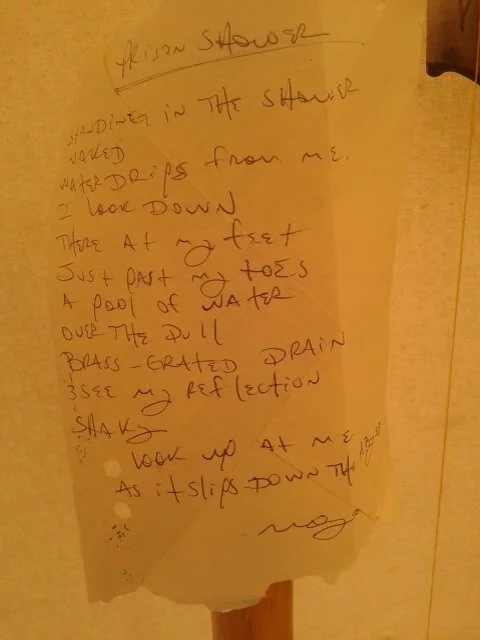 PRISON SHOWER
STANDING IN THE SHOWER
NAKED
WATER DRIPS from ME.
I LOOK DOWN
THERE AT my feet
JUST past my toES
A pool of WATER
OVER THE DUll
BRASS-GRATED DRAIN
I SEE my REflECTION
SHAKY
LOOK up AT ME
AS it slips DOWN THE